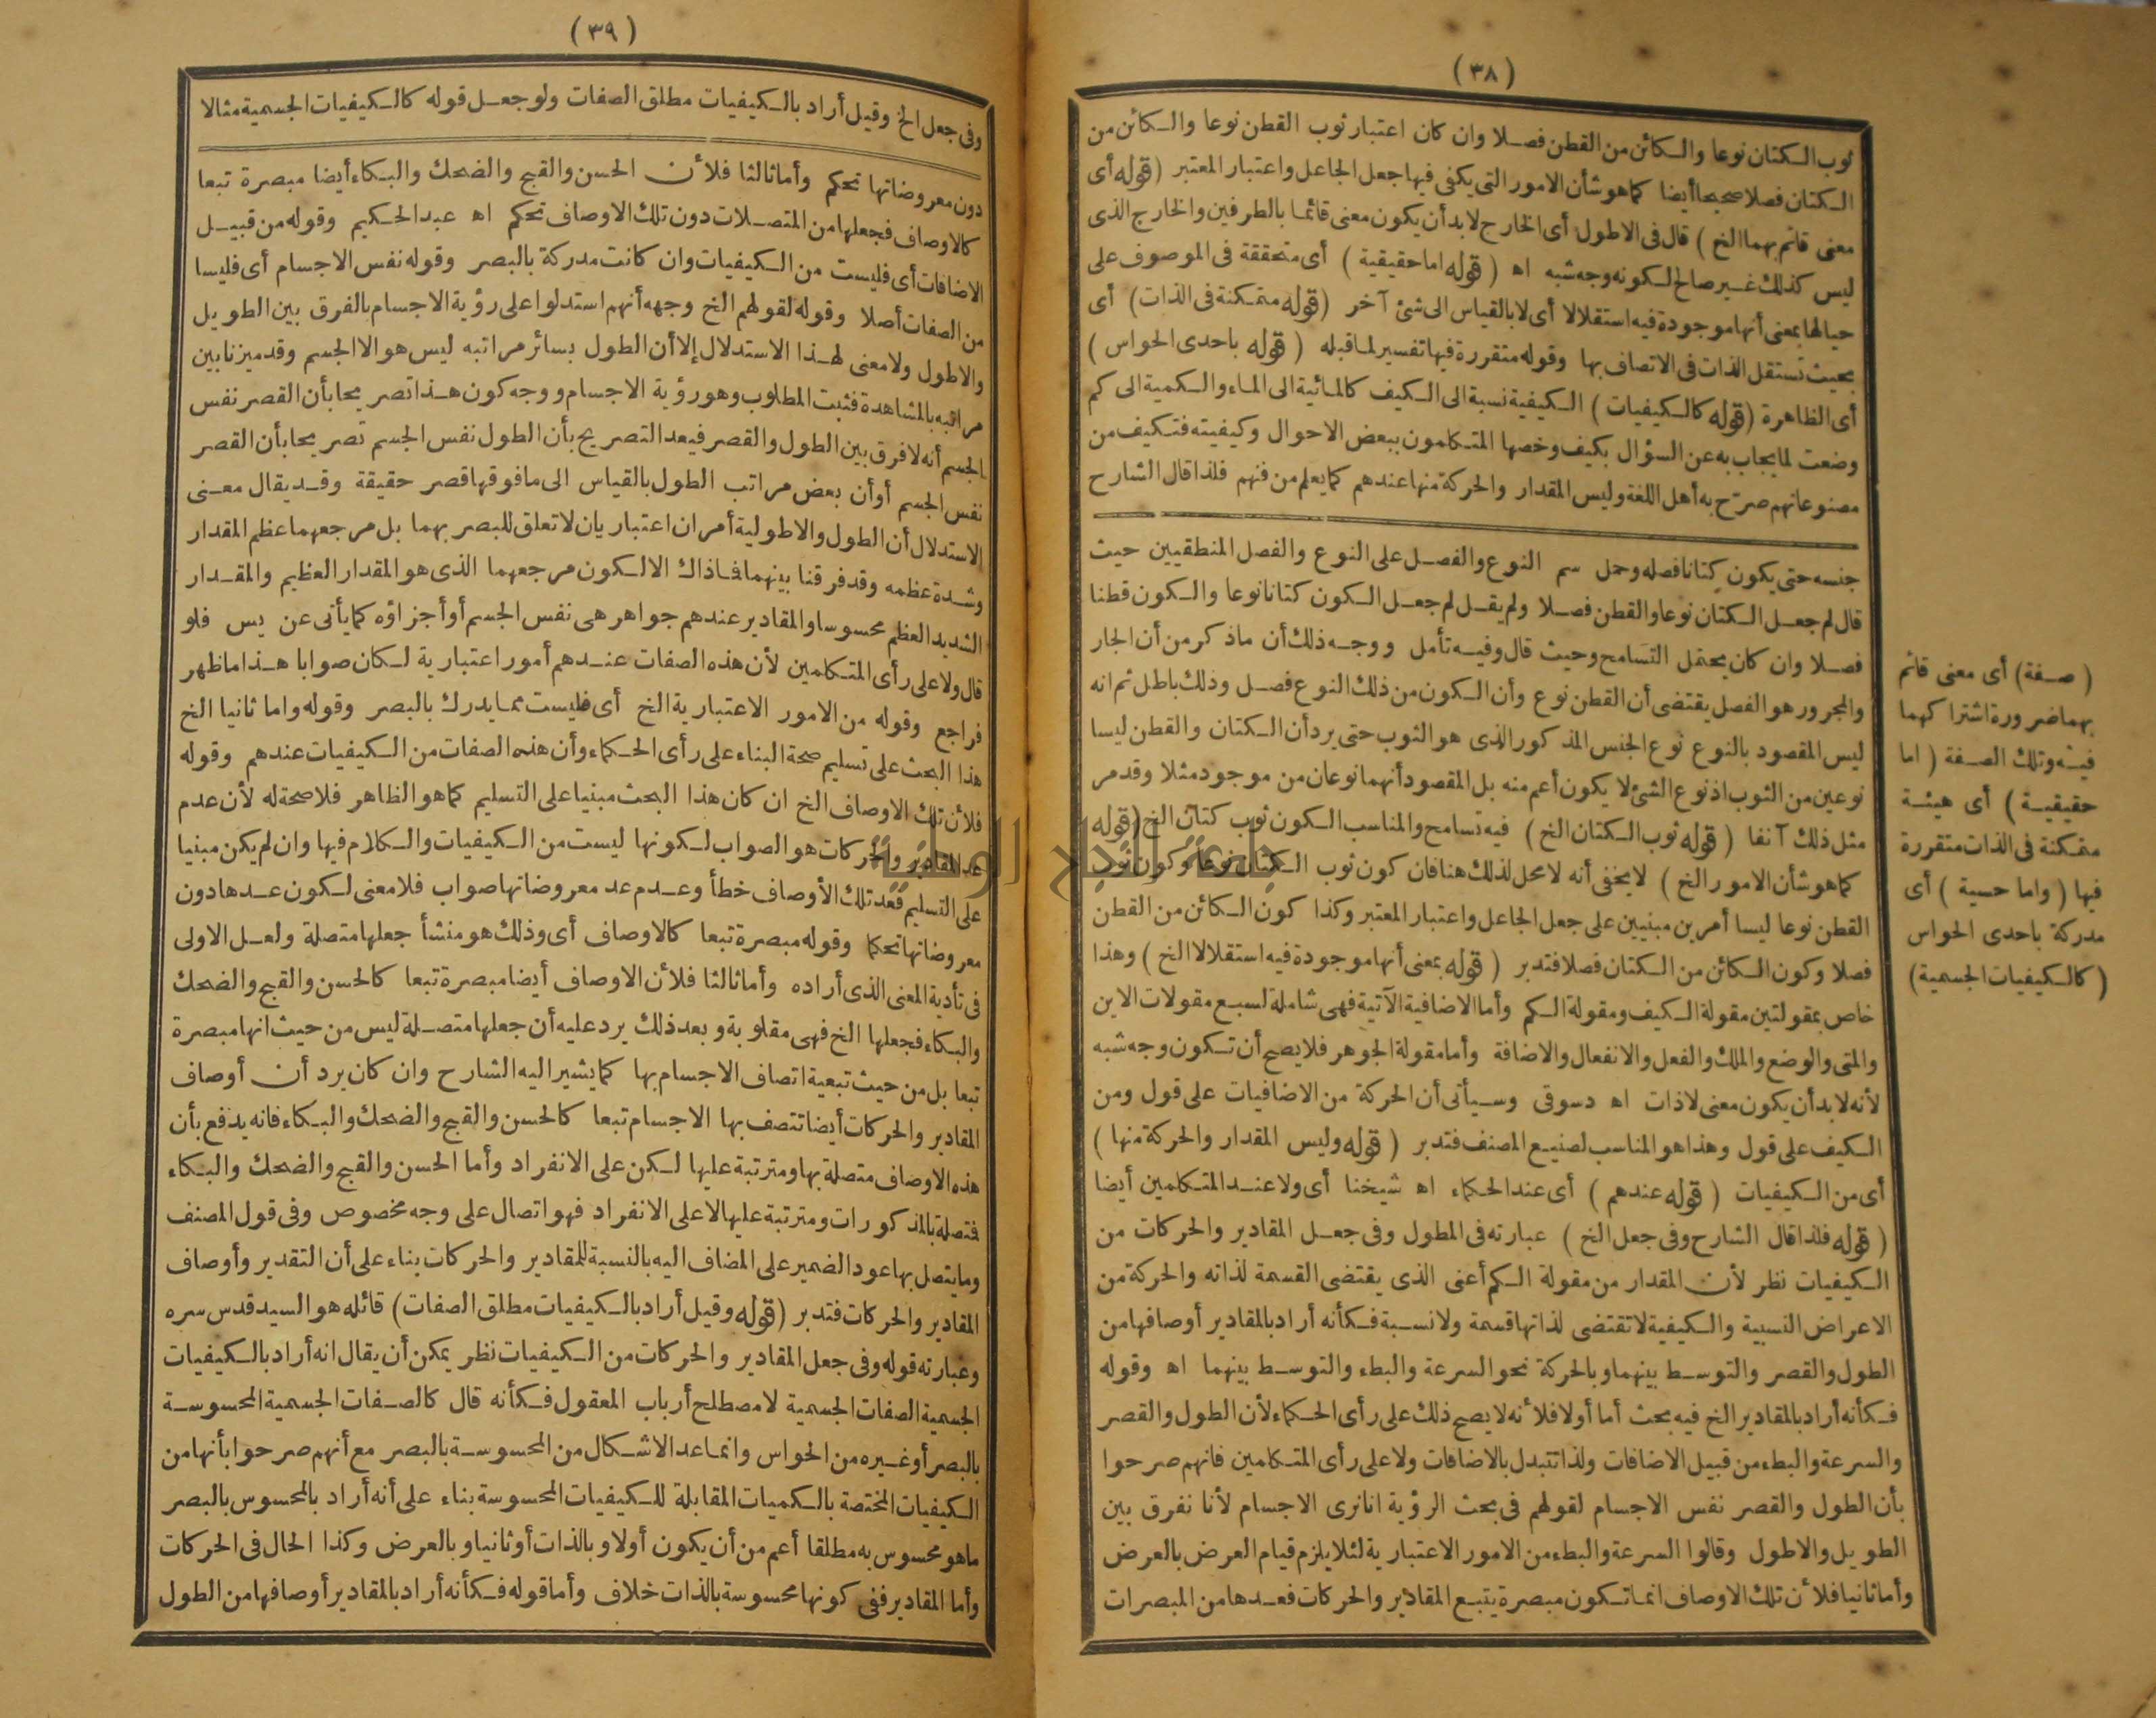 (٣٨)
ثوب الكتان نوعا والكائن من القطن فصلا وان كان اعتبار ثوب القطن نوعا والكائن من
الكتان فصلا صحيحا أيضا كما هو شأن الامور التى يكفى فيها جعل الجاعل واعتبار المعتبر (قوله أى
معنى قائم بهما الخ) قال فى الاطول أى الخارج لابد أن يكون معنى قائما بالطرفين والخارج الذى
ليس كذلك غير صالح لكونه وجه شبه اه (قوله اما حقيقية) أى متحققة فى الموصوف على
حيالها بمعنى أنها موجودة فيه استقلالا أى لا بالقياس الى شئ آخر (قوله متمكنة فى الذات) أى
بحيث تستقل الذات فى الاتصاف بها وقوله متقررة فيها تفسير لما قبله (قوله باحدى الحواس)
أى الظاهرة (قوله كالكيفيات) الكيفية نسبة الى الكيف كالمائية الى الماء والكمية الى كم
وضعت لما يجاب به عن السؤال بكيف وخصها المتكلمون ببعض الاحوال وكيفيته فتكيف من
مصنوعاتهم صرّح به أهل اللغة وليس المقدار والحركة منها عندهم كما يعلم من فنهم فلذا قال الشارح
جنسه حتى يكون كتانا فصله وحمل سم النوع والفصل على النوع والفصل المنطقيين حيث
قال لم جعل الكتان نوعا والقطن فصلا ولم يقل لم جعل الكون كتانا نوعا والكون قطنا
فصلا وان كان يحتمل التسامح وحيث قال وفيه تأمل ووجه ذلك أن ماذكر من أن الجار
والمجرور هو الفصل يقتضى أن القطن نوع وأن الكون من ذلك النوع فصل وذلك باطل ثم انه
ليس المقصود بالنوع نوع الجنس المذكور الذى هو الثوب حتى يرد أن الكتان والقطن ليسا
نوعين من الثوب اذ نوع الشئ لا يكون أعم منه بل المقصود أنهما نوعان من موجود مثلا وقد مر
مثل ذلك آنفا (قوله ثوب الكتان الخ) فيه تسامح والمناسب الكون ثوب كتان الخ (قوله
كما هو شأن الامور الخ) لا يخفى أنه لا محل لذلك هنا فان كون ثوب الكتان نوعا وكون ثوب
القطن نوعا ليسا أمرين مبنيين على جعل الجاعل واعتبار المعتبر وكذا كون الكائن من القطن
فصلا وكون الكائن من الكتان فصلا فتدبر (قوله بمعنى أنها موجودة فيه استقلالا الخ) وهذا
خاص بمقولتين مقولة الكيف ومقولة الكم وأما الاضافية الآتية فهى شاملة لسبع مقولات الاين
والمتى والوضع والملك والفعل والانفعال والاضافة وأما مقولة الجوهر فلا يصح أن تكون وجه شبه
لأنه لابد أن يكون معنى لا ذات اه دسوقى وسيأتى أن الحركة من الاضافيات على قول ومن
الكيف على قول وهذا هو المناسب لصنيع المصنف فتدبر (قوله وليس المقدار والحركة منها)
أى من الكيفيات (قوله عندهم) أى عند الحكماء اه شيخنا أى ولا عند المتكلمين أيضا
(قوله فلذا قال الشارح وفى جعل الخ) عبارته فى المطول وفى جعل المقادير والحركات من
الكيفيات نظر لأن المقدار من مقولة الكم أعنى الذى يقتضى القسمة لذاته والحركة من
الاعراض النسبية والكيفية لا تقتضى لذاتها قسمة ولا نسبة فكأنه أراد بالمقادير أوصافها من
الطول والقصر والتوسط بينهما وبالحركة نحو السرعة والبطء والتوسط بينهما اه وقوله
فكأنه أراد بالمقادير الخ فيه بحث أما أولا فلأنه لا يصح ذلك على رأى الحكماء لأن الطول والقصر
والسرعة والبطء من قبيل الاضافات ولذا تتبدل بالاضافات ولا على رأى المتكلمين فانهم صرحوا
بأن الطول والقصر نفس الاجسام لقولهم فى بحث الرؤية انا نرى الاجسام لأنا نفرق بين
الطويل والاطول وقالوا السرعة والبطء من الامور الاعتبارية لئلا يلزم قيام العرض بالعرض
وأما ثانيا فلأن تلك الاوصاف انما تكون مبصرة بتبع المقادير والحركات فعدها من المبصرات
(صفة) أى معنى قائم
بهما ضرورة اشتراكهما
فيه وتلك الصفة (اما
حقيقية) أى هيئة
متمكنة فى الذات متقررة
فيها (واما حسية) أى
مدركة باحدى الحواس
(كالكيفيات الجسمية)
(٣٩)
وفى جعل الخ وقيل أراد بالكيفيات مطلق الصفات ولو جعل قوله كالكيفيات الجسمية مثالا
دون معروضاتها تحكم وأما ثالثا فلأن الحسن والقبح والضحك والبكاء أيضا مبصرة تبعا
كالاوصاف فجعلها من المتصلات دون تلك الاوصاف تحكم اه عبد الحكيم وقوله من قبيل
الاضافات أى فليست من الكيفيات وان كانت مدركة بالبصر وقوله نفس الاجسام أى فليسا
من الصفات أصلا وقوله لقولهم الخ وجهه أنهم استدلوا على رؤية الاجسام بالفرق بين الطويل
والاطول ولا معنى لهذا الاستدلال إلا أن الطول بسائر مراتبه ليس هو الا الجسم وقد ميزنا بين
مراتبه بالمشاهدة فثبت المطلوب وهو رؤية الاجسام ووجه كون هذا تصريحا بأن القصر نفس
الجسم أنه لا فرق بين الطول والقصر فيعد التصريح بأن الطول نفس الجسم تصريحا بأن القصر
نفس الجسم أو أن بعض مراتب الطول بالقياس الى ما فوقها قصر حقيقة وقد يقال معنى
الاستدلال أن الطول والاطولية أمران اعتباريان لا تعلق للبصر بهما بل مرجعهما عظم المقدار
وشدة عظمه وقد فرقنا بينهما فاذاك الا لكون مرجعهما الذى هو المقدار العظيم والمقدار
الشديد العظم محسوسا والمقادير عندهم جواهر هى نفس الجسم أو أجزاؤه كما يأتى عن يس فلو
قال ولا على رأى المتكلمين لأن هذه الصفات عندهم أمور اعتبارية لكان صوابا هذا ما ظهر
فراجع وقوله من الامور الاعتبارية الخ أى فليست مما يدرك بالبصر وقوله واما ثانيا الخ
هذا البحث على تسليم صحة البناء على رأى الحكماء وأن هذه الصفات من الكيفيات عندهم وقوله
فلأن تلك الاوصاف الخ ان كان هذا البحث مبنيا على التسليم كما هو الظاهر فلا صحة له لأن عدم
عد المقادير والحركات هو الصواب لكونها ليست من الكيفيات والكلام فيها وان لم يكن مبنيا
على التسليم فعد تلك الأوصاف خطأ وعدم عد معروضاتها صواب فلا معنى لكون عدها دون
معروضاتها تحكما وقوله مبصرة تبعا كالاوصاف أى وذلك هو منشأ جعلها متصلة ولعل الاولى
فى تأدية المعنى الذى أراده وأما ثالثا فلأن الاوصاف أيضا مبصرة تبعا كالحسن والقبح والضحك
والبكاء فجعلها الخ فهى مقلوبة وبعد ذلك يرد عليه أن جعلها متصلة ليس من حيث انها مبصرة
تبعا بل من حيث تبعية اتصاف الاجسام بها كما يشير اليه الشارح وان كان يرد أن أوصاف
المقادير والحركات أيضا تتصف بها الاجسام تبعا كالحسن والقبح والضحك والبكاء فانه يدفع بأن
هذه الاوصاف متصلة بها ومترتبة عليها لكن على الانفراد وأما الحسن والقبح والضحك والبكاء
فتصلة بالمذكورات ومترتبة عليها لا على الانفراد فهو اتصال على وجه مخصوص وفى قول المصنف
وما يتصل بها عود الضمير على المضاف اليه بالنسبة للمقادير والحركات بناء على أن التقدير وأوصاف
المقادير والحركات فتدبر (قوله وقيل أراد بالكيفيات مطلق الصفات) قائله هو السيد قدس سره
وعبارته قوله وفى جعل المقادير والحركات من الكيفيات نظر يمكن أن يقال انه أراد بالكيفيات
الجسمية الصفات الجسمية لا مصطلح أرباب المعقول فكأنه قال كالصفات الجسمية المحسوسة
بالبصر أو غيره من الحواس وانما عد الاشكال من المحسوسة بالبصر مع أنهم صرحوا بأنها من
الكيفيات المختصة بالكميات المقابلة للكيفيات المحسوسة بناء على أنه أراد بالمحسوس بالبصر
ما هو محسوس به مطلقا أعم من أن يكون أولا وبالذات أو ثانيا وبالعرض وكذا الحال فى الحركات
وأما المقادير ففى كونها محسوسة بالذات خلاف وأما قوله فكأنه أراد بالمقادير أوصافها من الطول